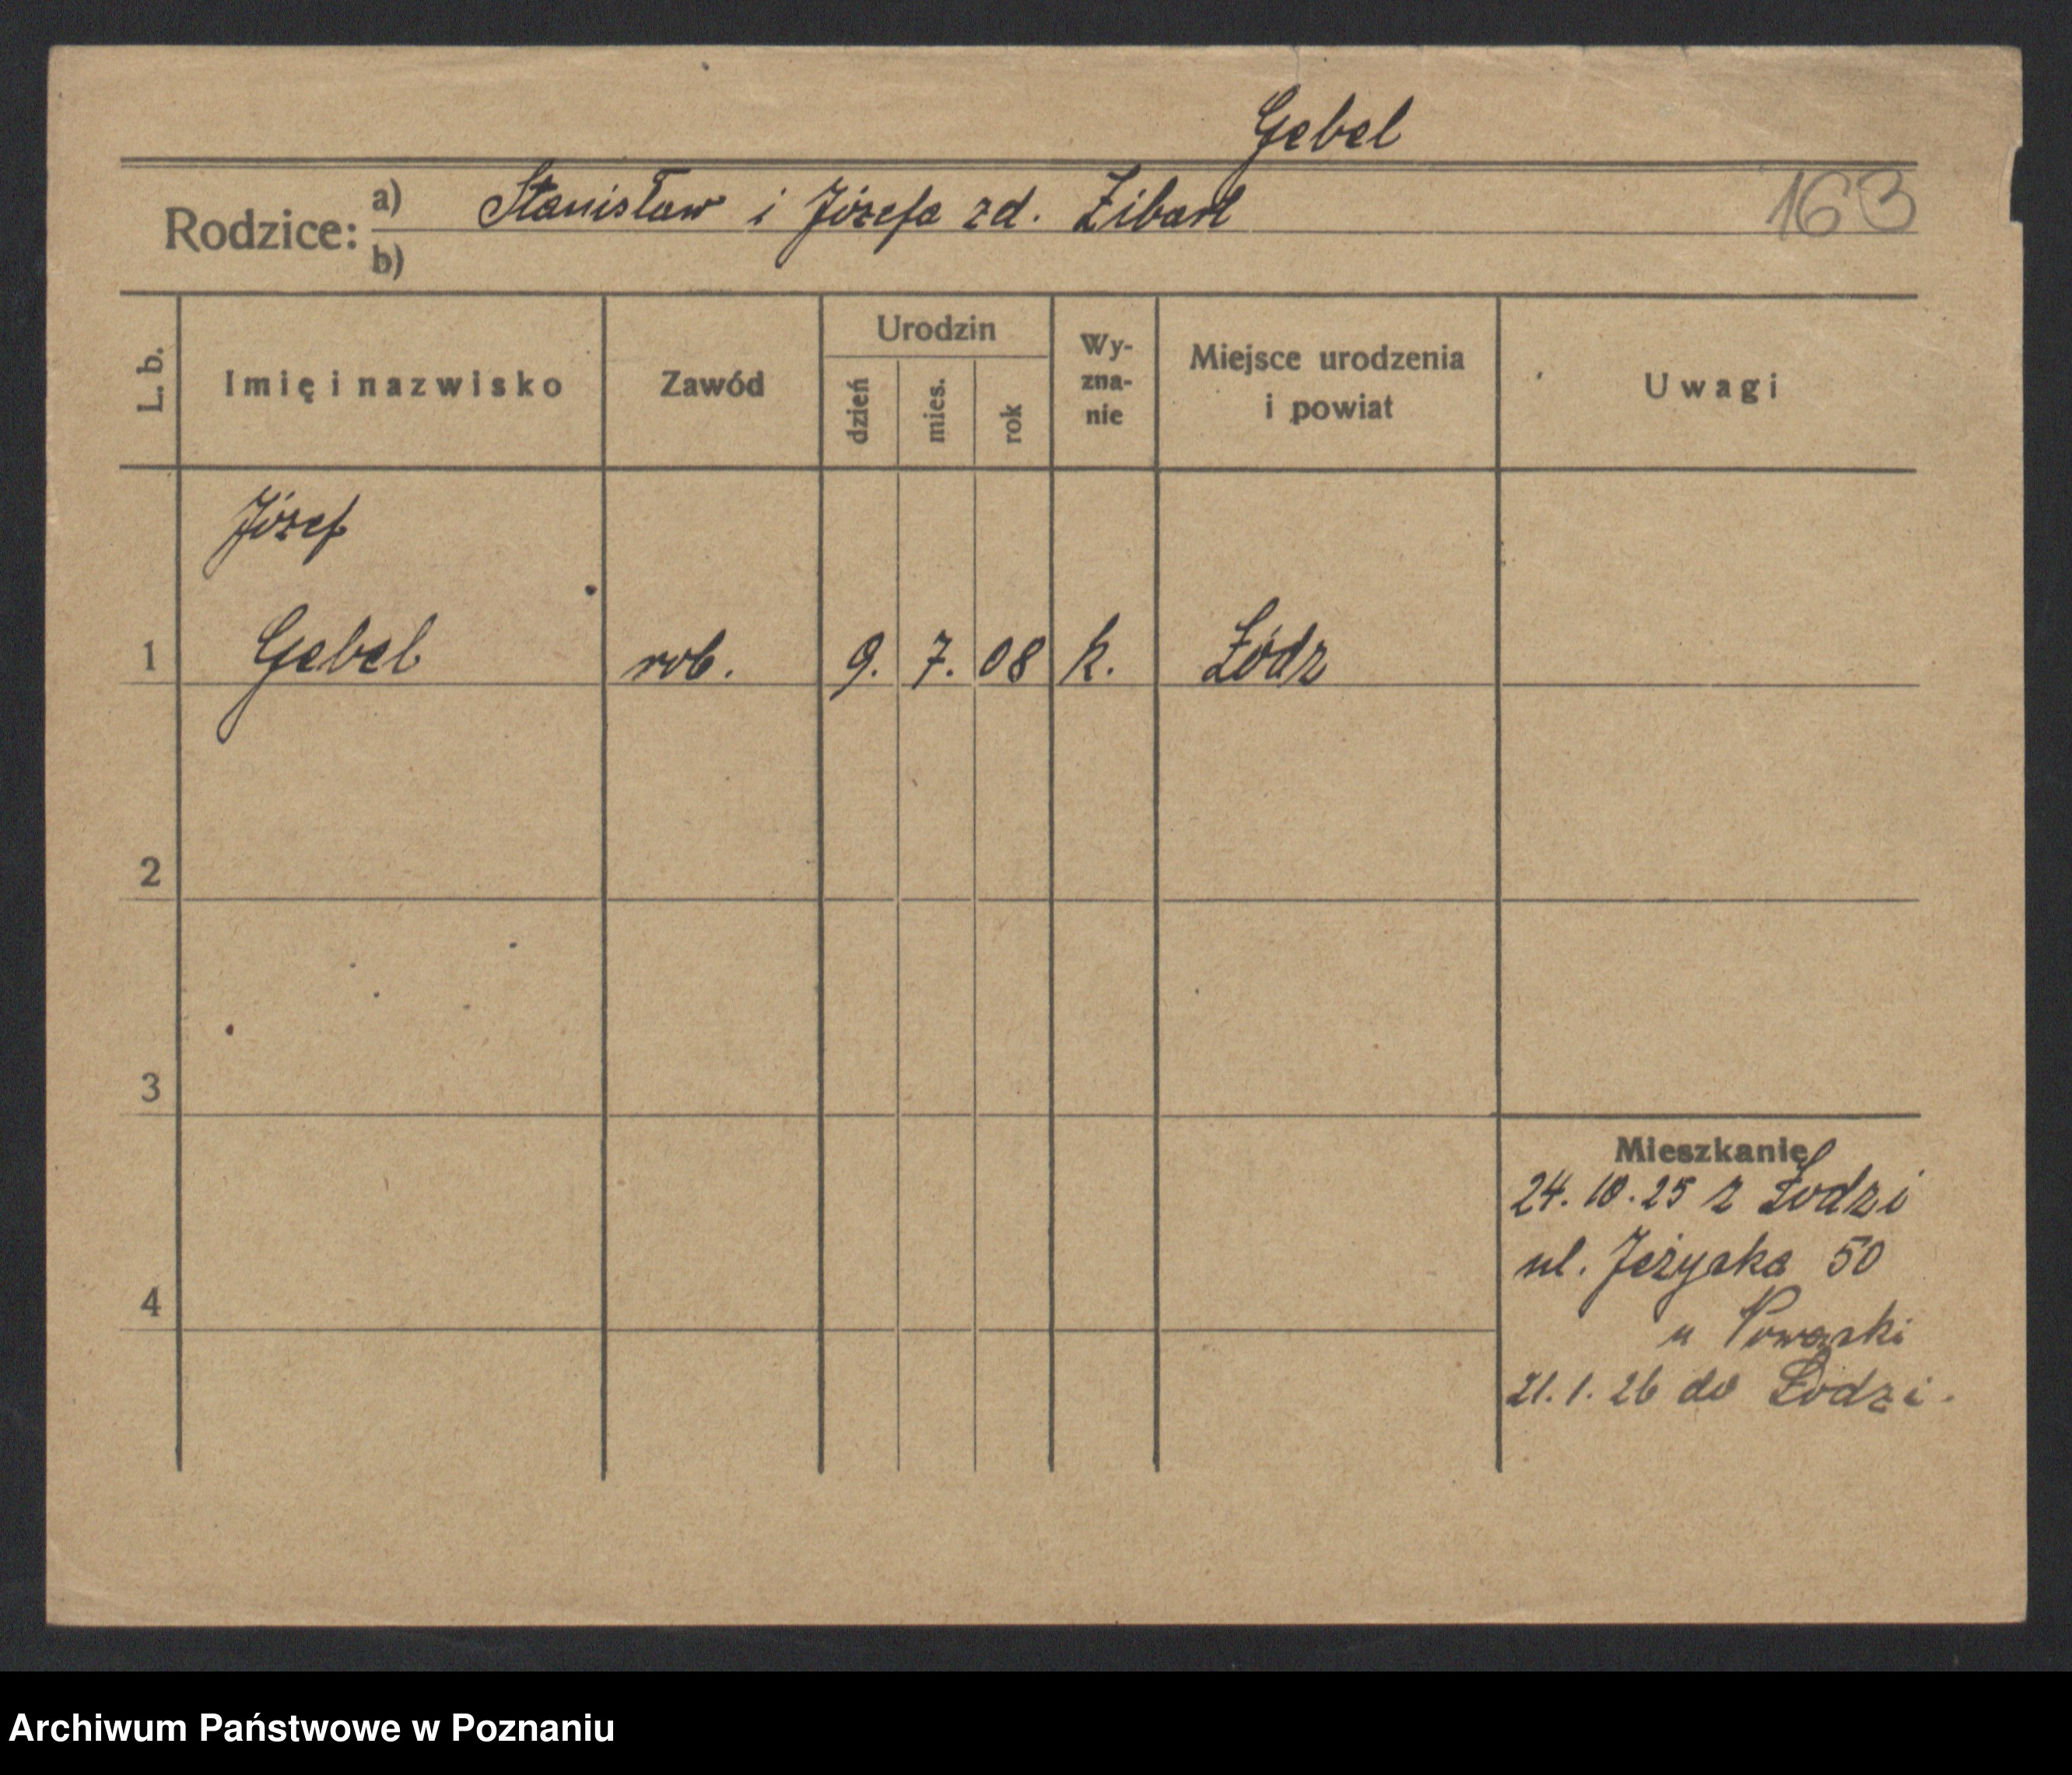 Gebel
Rodzice: a) Stanisław i Józefa zd. 163
b)
L. b. Imię i nazwisko Zawód Urodzin dzień mies. rok Wy-zna-nie Miejsce urodzenia i powiat Uwagi
Józef
1 Gebel rob. 9. 7. 08 k. Łódz
2
3
Mieszkanie
24. 10. 25 z Łodzi
ul. Jeżycka 50
4
u
21. 1. 26 do Łodzi.
Archiwum Państwowe w Poznaniu